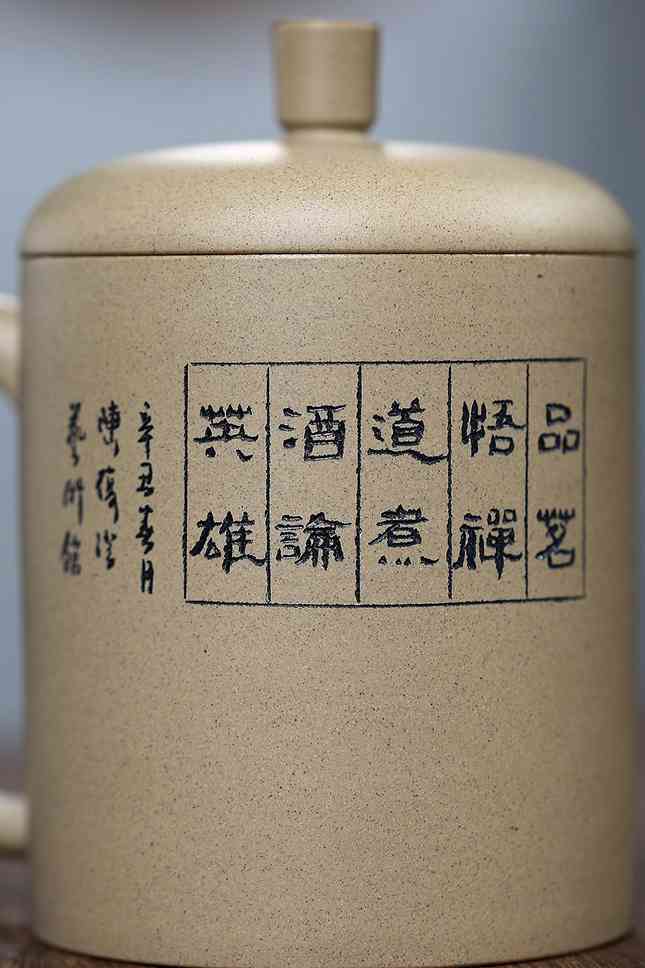 品茗
悟禪
道煮
酒論
英雄
辛丑春月
陳復澄
藝術館